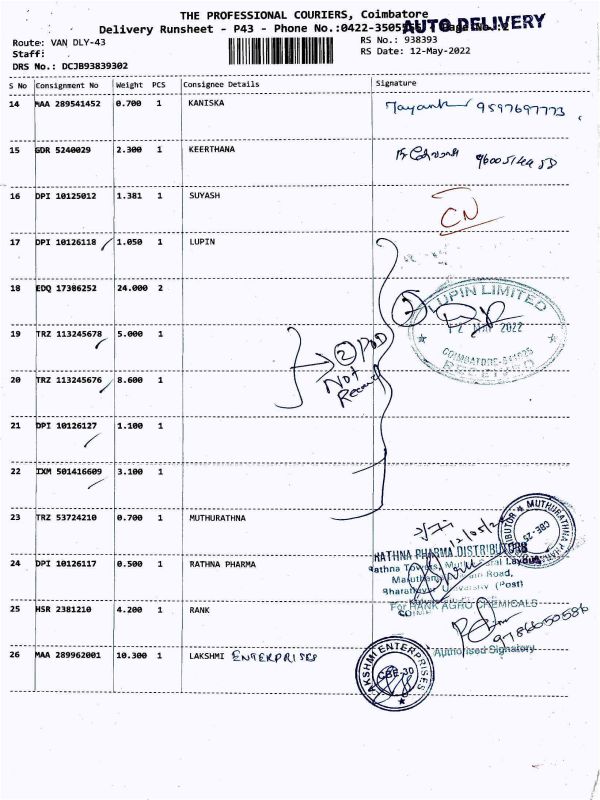 THE PROFESSIONAL COURIERS, Coimbatore
Delivery Runsheet - P43 - Phone No.:0422-3505
AUTO DELIVERY
Route: VAN DLY-43
RS No.: 938393
Staff:
RS Date: 12-May-2022
DRS No.: DCJB93839302
S No Consignment No Weight PCS Consignee Details Signature
14 MAA 289541452 0.700 1 KANISKA Mayank 9597697773
15 GDR 5240029 2.300 1 KEERTHANA
16 DPI 10125012 1.381 1 SUYASH CN
17 DPI 10126118 1.050 1 LUPIN
18 EDQ 17386252 24.000 2
LUPIN LIMITED
2022
COIMBATORE
RECEIVED
19 TRZ 113245678 5.000 1
2 POD
Not
20 TRZ 113245676 8.600 1
21 DPI 10126127 1.100 1
22 IXM 501416609 3.100 1
23 TRZ 53724210 0.700 1 MUTHURATHNA
MUTHURATHNA
24 DPI 10126117 0.500 1 RATHNA PHARMA
RATHNA PHARMA DISTRIBUTORS
Layout
Road,
(Post)
25 HSR 2381210 4.200 1 RANK
For RANK AGRO CHEMICALS
Authorised Signatory
26 MAA 289962001 10.300 1 LAKSHMI ENTERPRISES
LAKSHMI ENTERPRISES
CBE-30